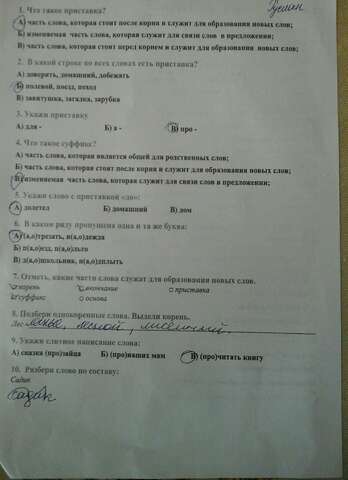 1. Что такое приставка?
А) часть слова, которая стоит после корня и служит для образования новых слов;
Б) изменяемая часть слова, которая служит для связи слов в предложении;
В) часть слова, которая стоит перед корнем и служит для образования новых слов;
2. В какой строке во всех словах есть приставка?
А) доверять, домашний, добежать
Б) полевой, поезд, поход
В) завитушка, загадка, зарубка
3. Укажи приставку
А) для - Б) а - В) про -
4. Что такое суффикс?
А) часть слова, которая является общей для родственных слов;
Б) часть слова, которая стоит после корня и служит для образования новых слов;
В) изменяемая часть слова, которая служит для связи слов в предложении;
5. Укажи слово с приставкой «до»:
А) долетел Б) домашний В) дом
6. В каком ряду пропущена одна и та же буква:
А) (а,о)трезать, н(а,о)дежда
Б) п(а,о)езд, п(а,о)льто
В) д(а,о)школьника, н(а,о)плыть
7. Отметь, какие части слова служат для образования новых слов.
корень окончание приставка
суффикс основа
8. Подбери однокоренные слова. Выдели корень.
Лес лесной,
9. Укажи слитное написание слова:
А) сказка (про)зайца Б) (про)наших мам В) (про)читать книгу
10. Разбери слово по составу:
Садик
садик